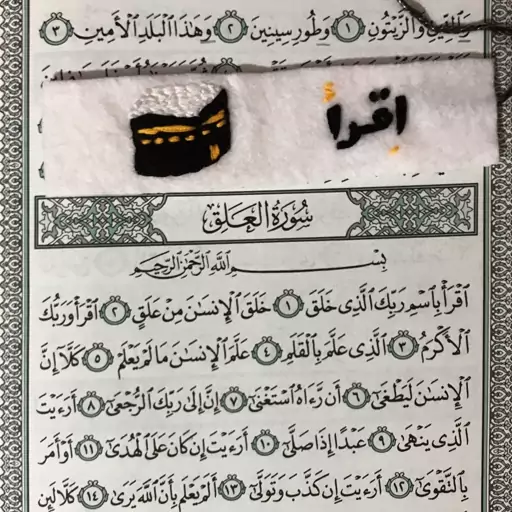 وَالتِّينِ وَالزَّيْتُونِ ١ وَطُورِ سِينِينَ ٢ وَهَٰذَا الْبَلَدِ الْأَمِينِ ٣
اقرأ
سُورَةُ الْعَلَقِ
بِسْمِ اللَّهِ الرَّحْمَٰنِ الرَّحِيمِ
اقْرَأْ بِاسْمِ رَبِّكَ الَّذِي خَلَقَ ١ خَلَقَ الْإِنسَٰنَ مِنْ عَلَقٍ ٢ اقْرَأْ وَرَبُّكَ
الْأَكْرَمُ ٣ الَّذِي عَلَّمَ بِالْقَلَمِ ٤ عَلَّمَ الْإِنسَٰنَ مَا لَمْ يَعْلَمْ ٥ كَلَّا إِنَّ
الْإِنسَٰنَ لَيَطْغَىٰ ٦ أَن رَّءَاهُ اسْتَغْنَىٰ ٧ إِنَّ إِلَىٰ رَبِّكَ الرُّجْعَىٰ ٨ أَرَءَيْتَ
الَّذِي يَنْهَىٰ ٩ عَبْدًا إِذَا صَلَّىٰ ١٠ أَرَءَيْتَ إِن كَانَ عَلَى الْهُدَىٰ ١١ أَوْ أَمَرَ
بِالتَّقْوَىٰ ١٢ أَرَءَيْتَ إِن كَذَّبَ وَتَوَلَّىٰ ١٣ أَلَمْ يَعْلَم بِأَنَّ اللَّهَ يَرَىٰ ١٤ كَلَّا لَئِن